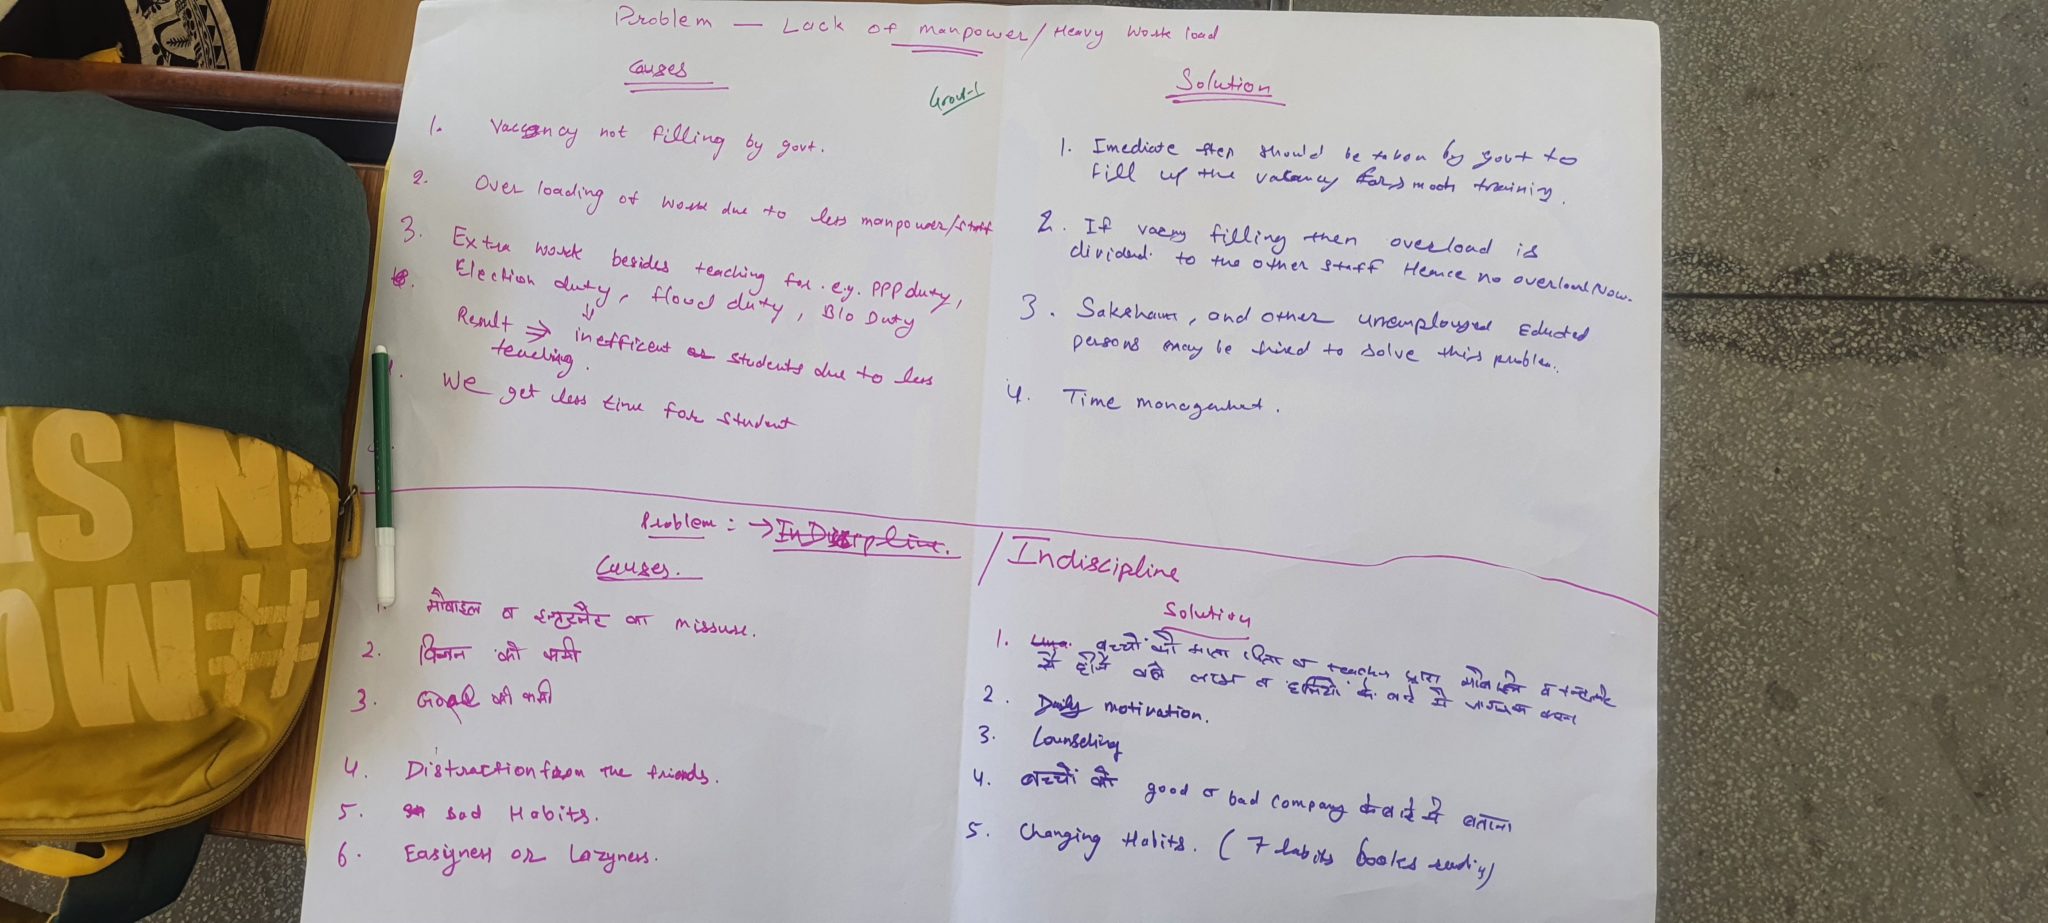 Problem — Lack of manpower/Heavy work load
Causes
Group-1
1. Vacancy not filling by govt.
2. Over loading of work due to less manpower/staff
3. Extra work besides teaching for e.g. PPP duty,
Election duty, flood duty, Blo Duty
Result ⇒ inefficent students due to less
teaching.
We get less time for student
Solution
1. Imediate step should be taken by govt to
fill up the vacancy for smooth training.
2. If vacancy filling then overload is
divided to the other staff Hence no overload Now.
3. Saksham, and other unemployed Educted
persons may be hired to solve this problem.
4. Time management.
Problem : → / Indiscipline
Causes.
1. मोबाइल व इन्टरनेट का missuse.
2. विजन की कमी
3. Goal की कमी
4. Distraction from the friends.
5. bad Habits.
6. Easyness or Lazyness.
Solution
1. बच्चों को माता पिता व teacher द्वारा मोबाईल व इन्टरनेट
से होने वाले लाभ व हानियों के बारे में जागरूक करना
2. Daily motivation.
3. Counseling
4. बच्चों को good व bad company के बारे में बताना
5. Changing Habits. (7 habits books reading)
IS N
OW #